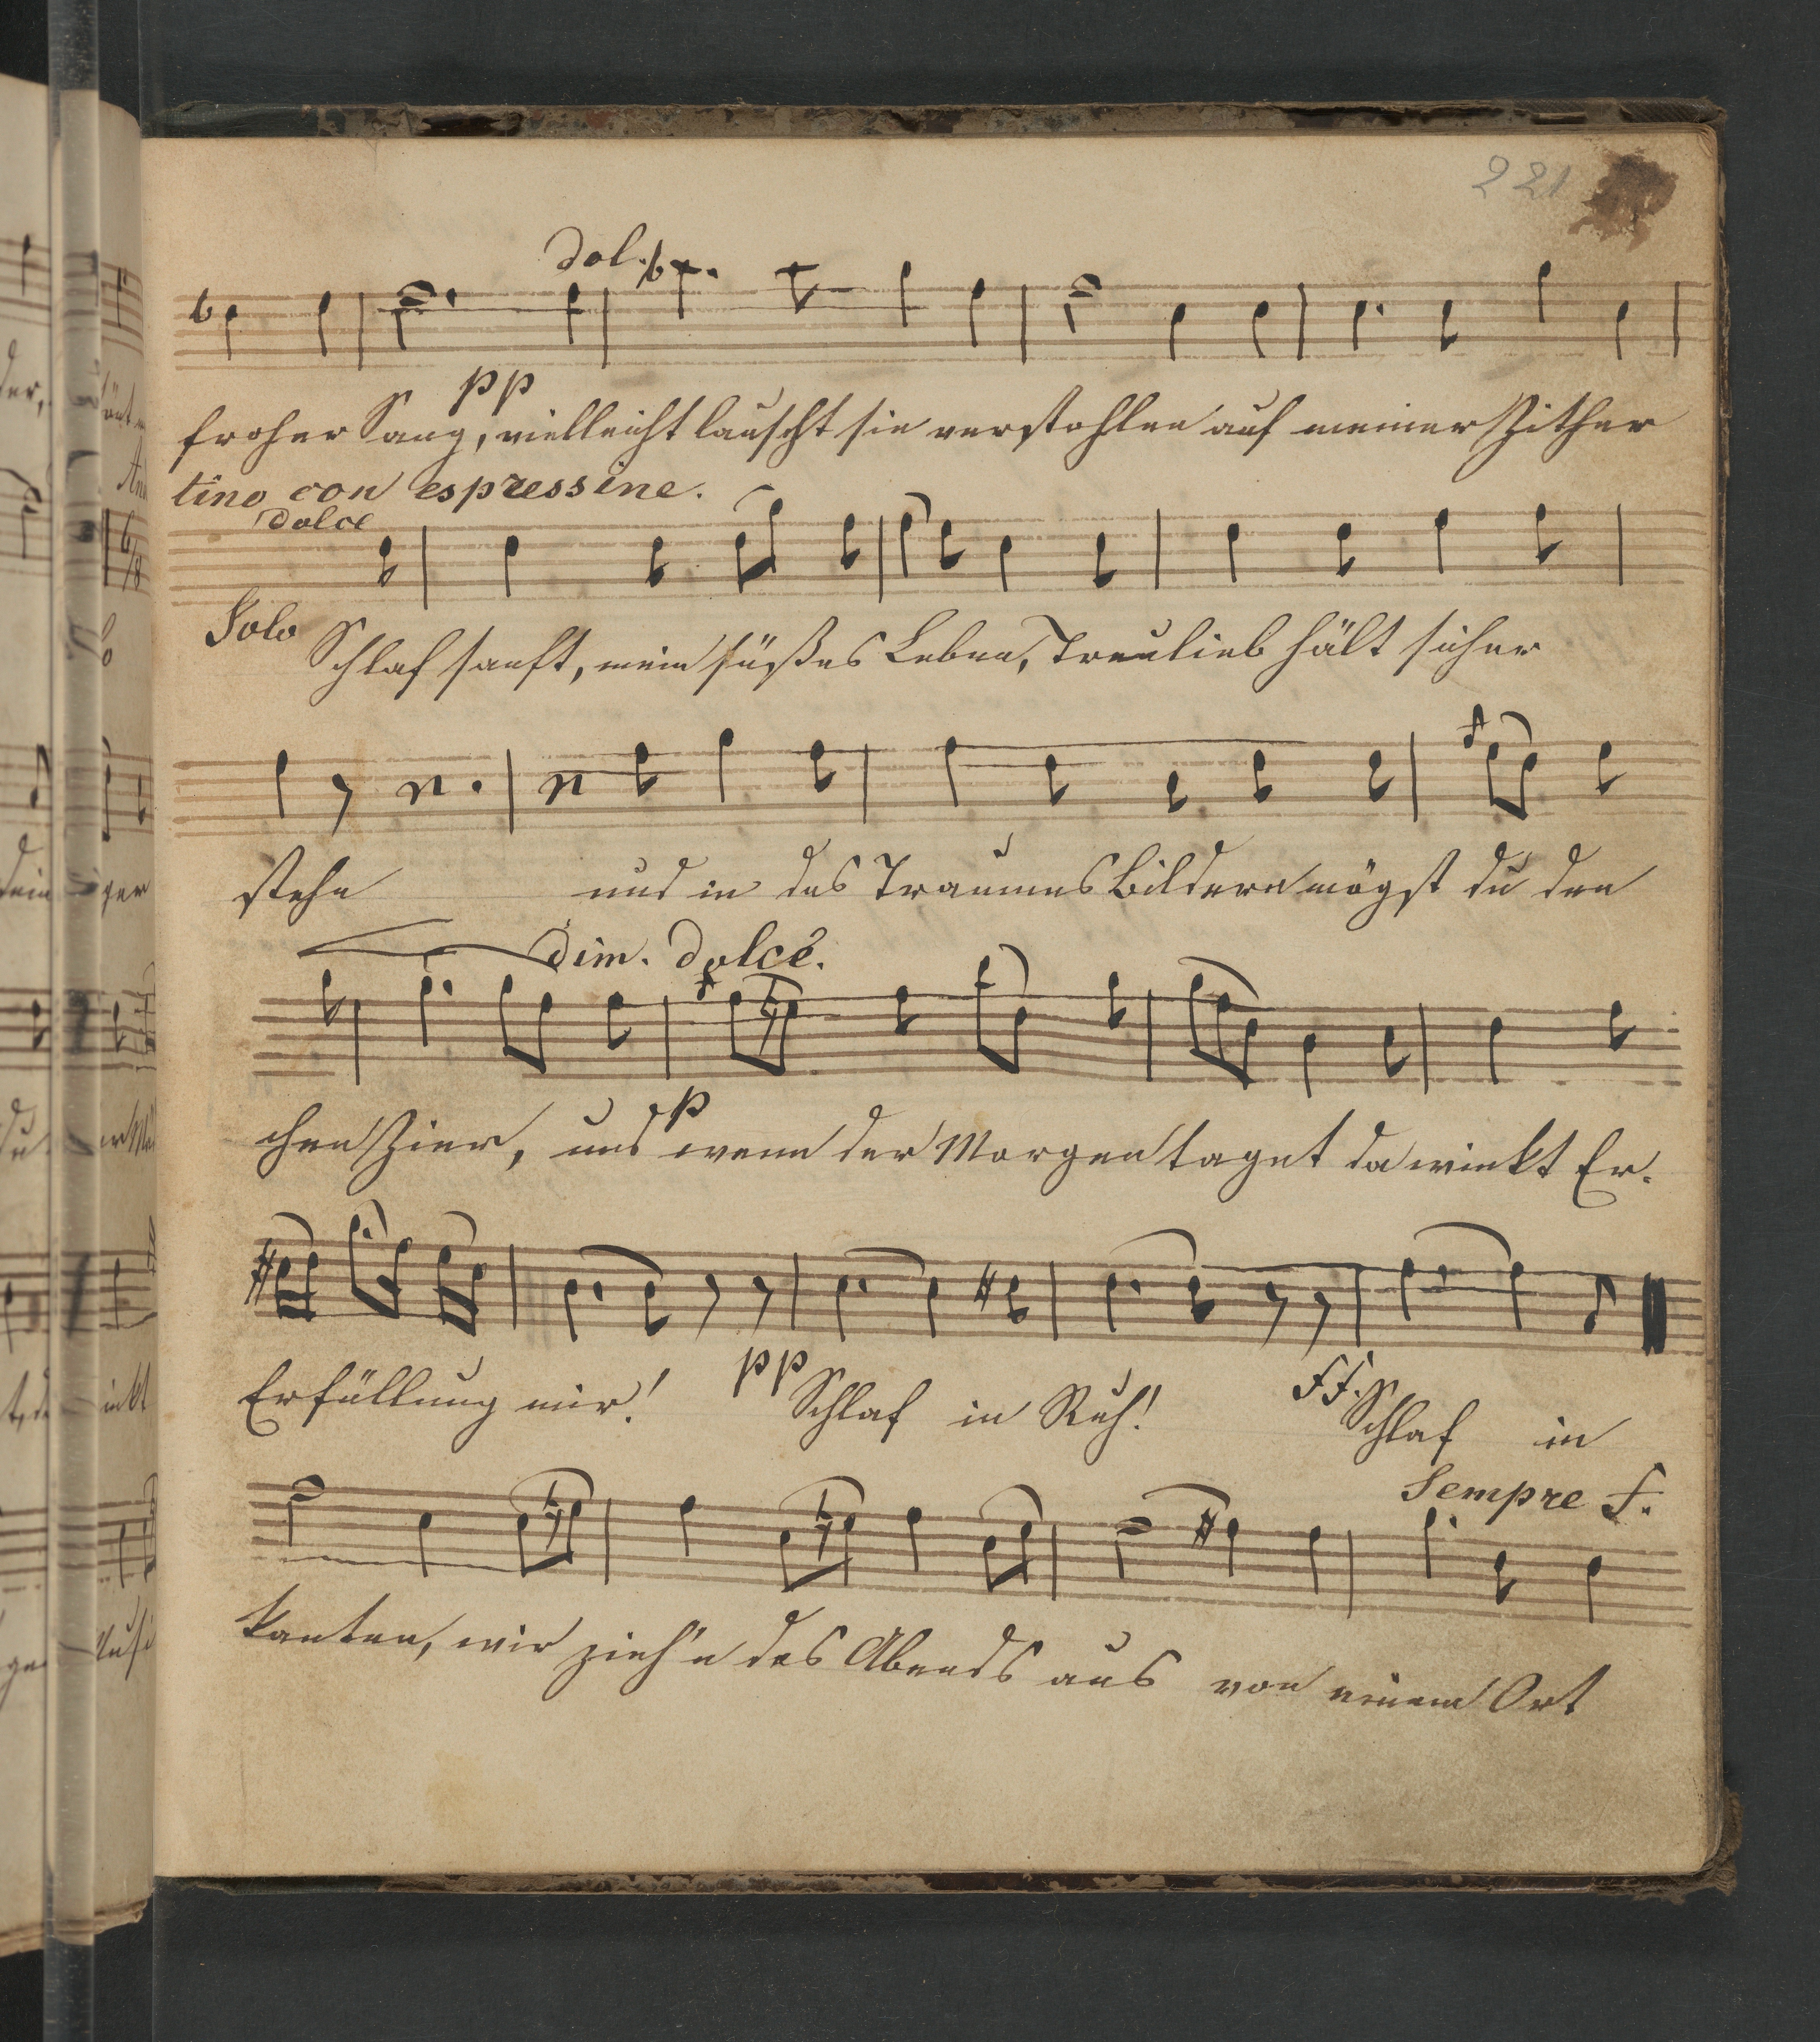 221
dol.
pp
froher Sang, vielleicht lauscht sie verstohlen auf meiner Zither
tino con espressine.
dolce
Solo
Schlaf sanft, mein süßes Leben, Treulieb hält sicher
stehe und in des Traumes Bildern mögst du den
dim. dolcé.
p
chen Zier, und wenn der Morgen taget da winkt Er-
Erfüllung mir! pp Schlaf in Ruh! ff. Schlaf in
Sempre f.
kanten, wir zieh'n des Abends aus von einem Ort